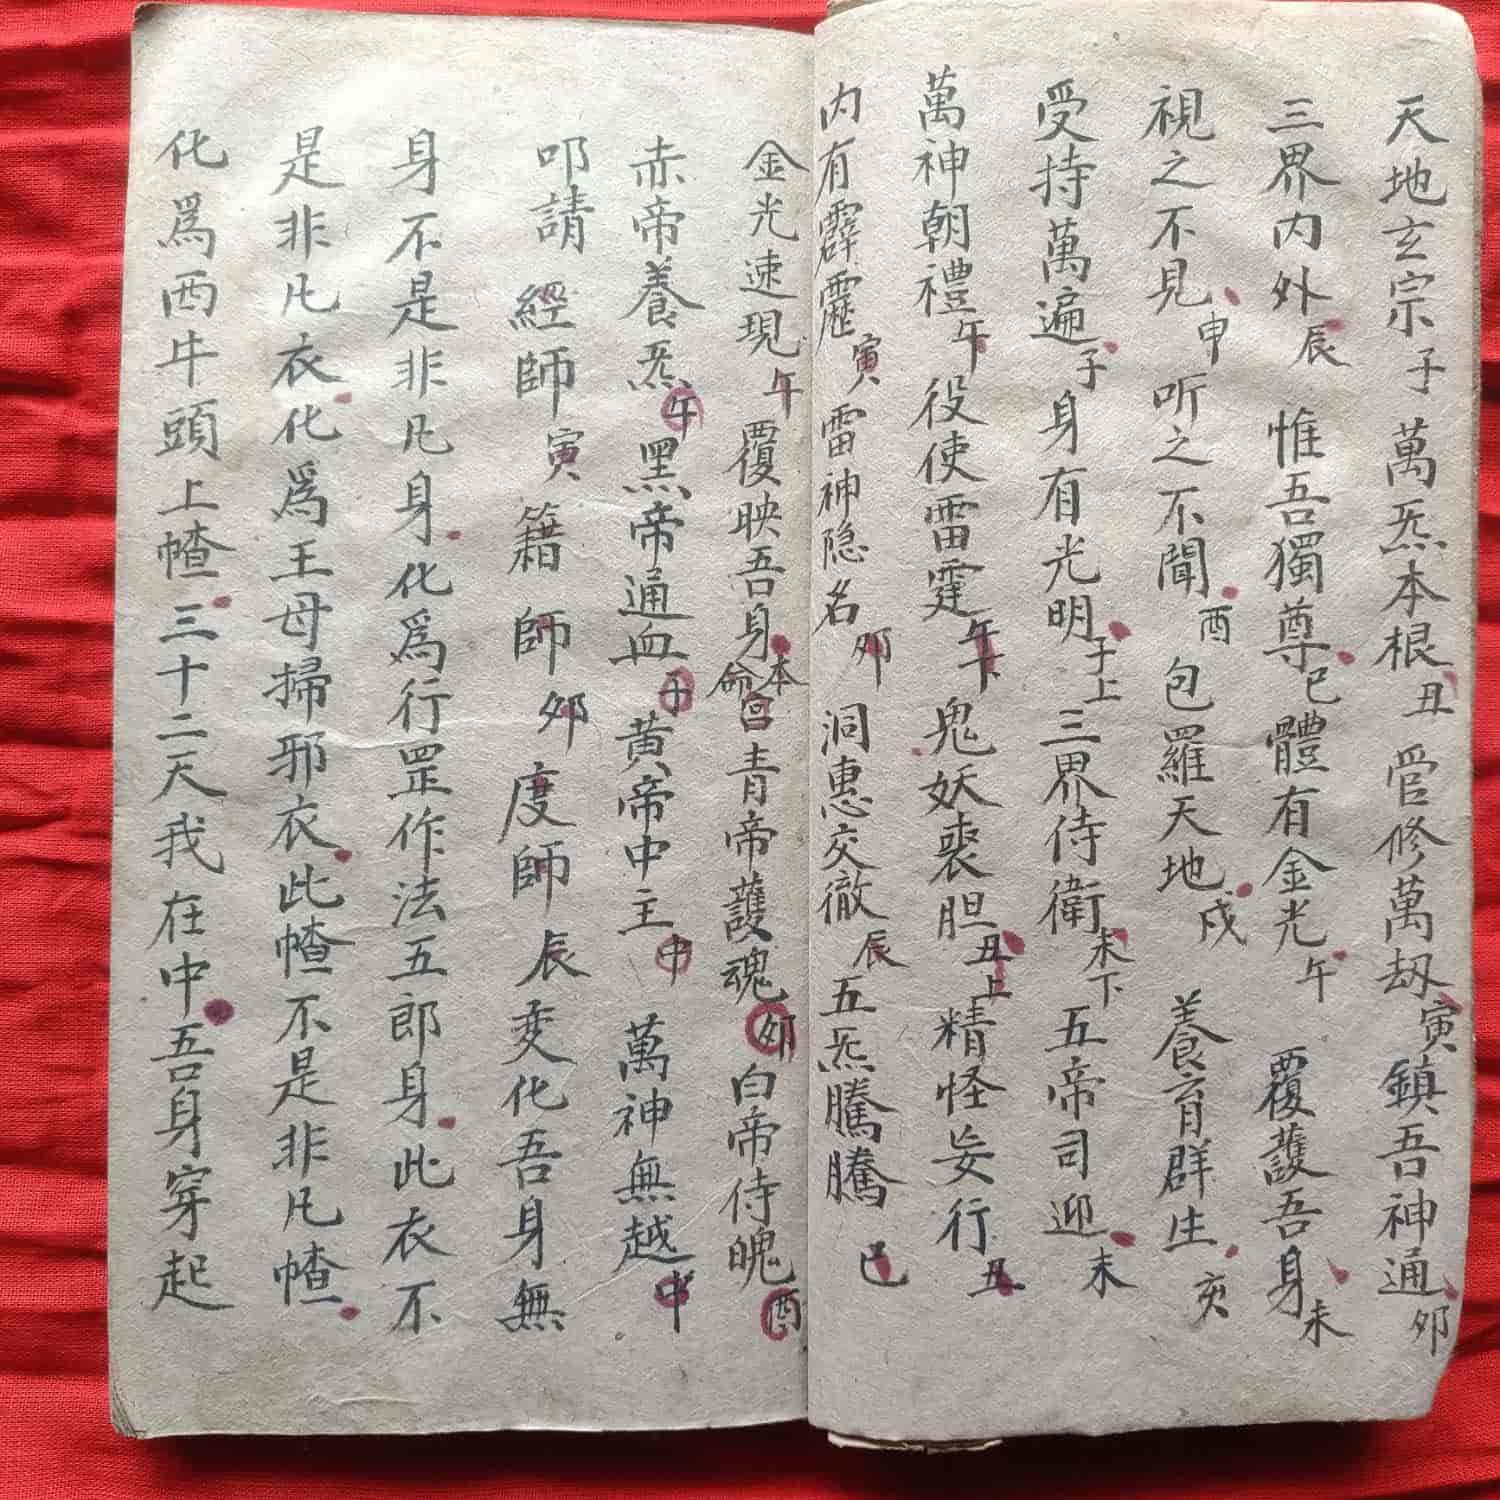 天地玄宗子萬炁本根丑管修萬劫寅鎮吾神通夘
三界内外辰惟吾獨尊巳體有金光午覆護吾身未
視之不見申听之不聞酉包羅天地戍養育群生亥
受持萬遍子身有光明子上三界侍衛未下五帝司迎未
萬神朝禮午役使雷霆午下鬼妖喪胆丑上精怪妄行丑
内有霹靂寅雷神隐名夘洞惠交徹辰五炁騰騰巳
金光速現午覆映吾身本命宫青帝護魂夘白帝侍魄酉
赤帝養炁午黑帝通血子黄帝中主中萬神無越中
叩請經師寅籍師夘度師辰变化吾身無
身不是非凡身化爲行罡作法五郎身此衣不
是非凡衣化爲王母掃邪衣此幨不是非凡幨
化爲西牛頭上幨三十二天我在中吾身穿起